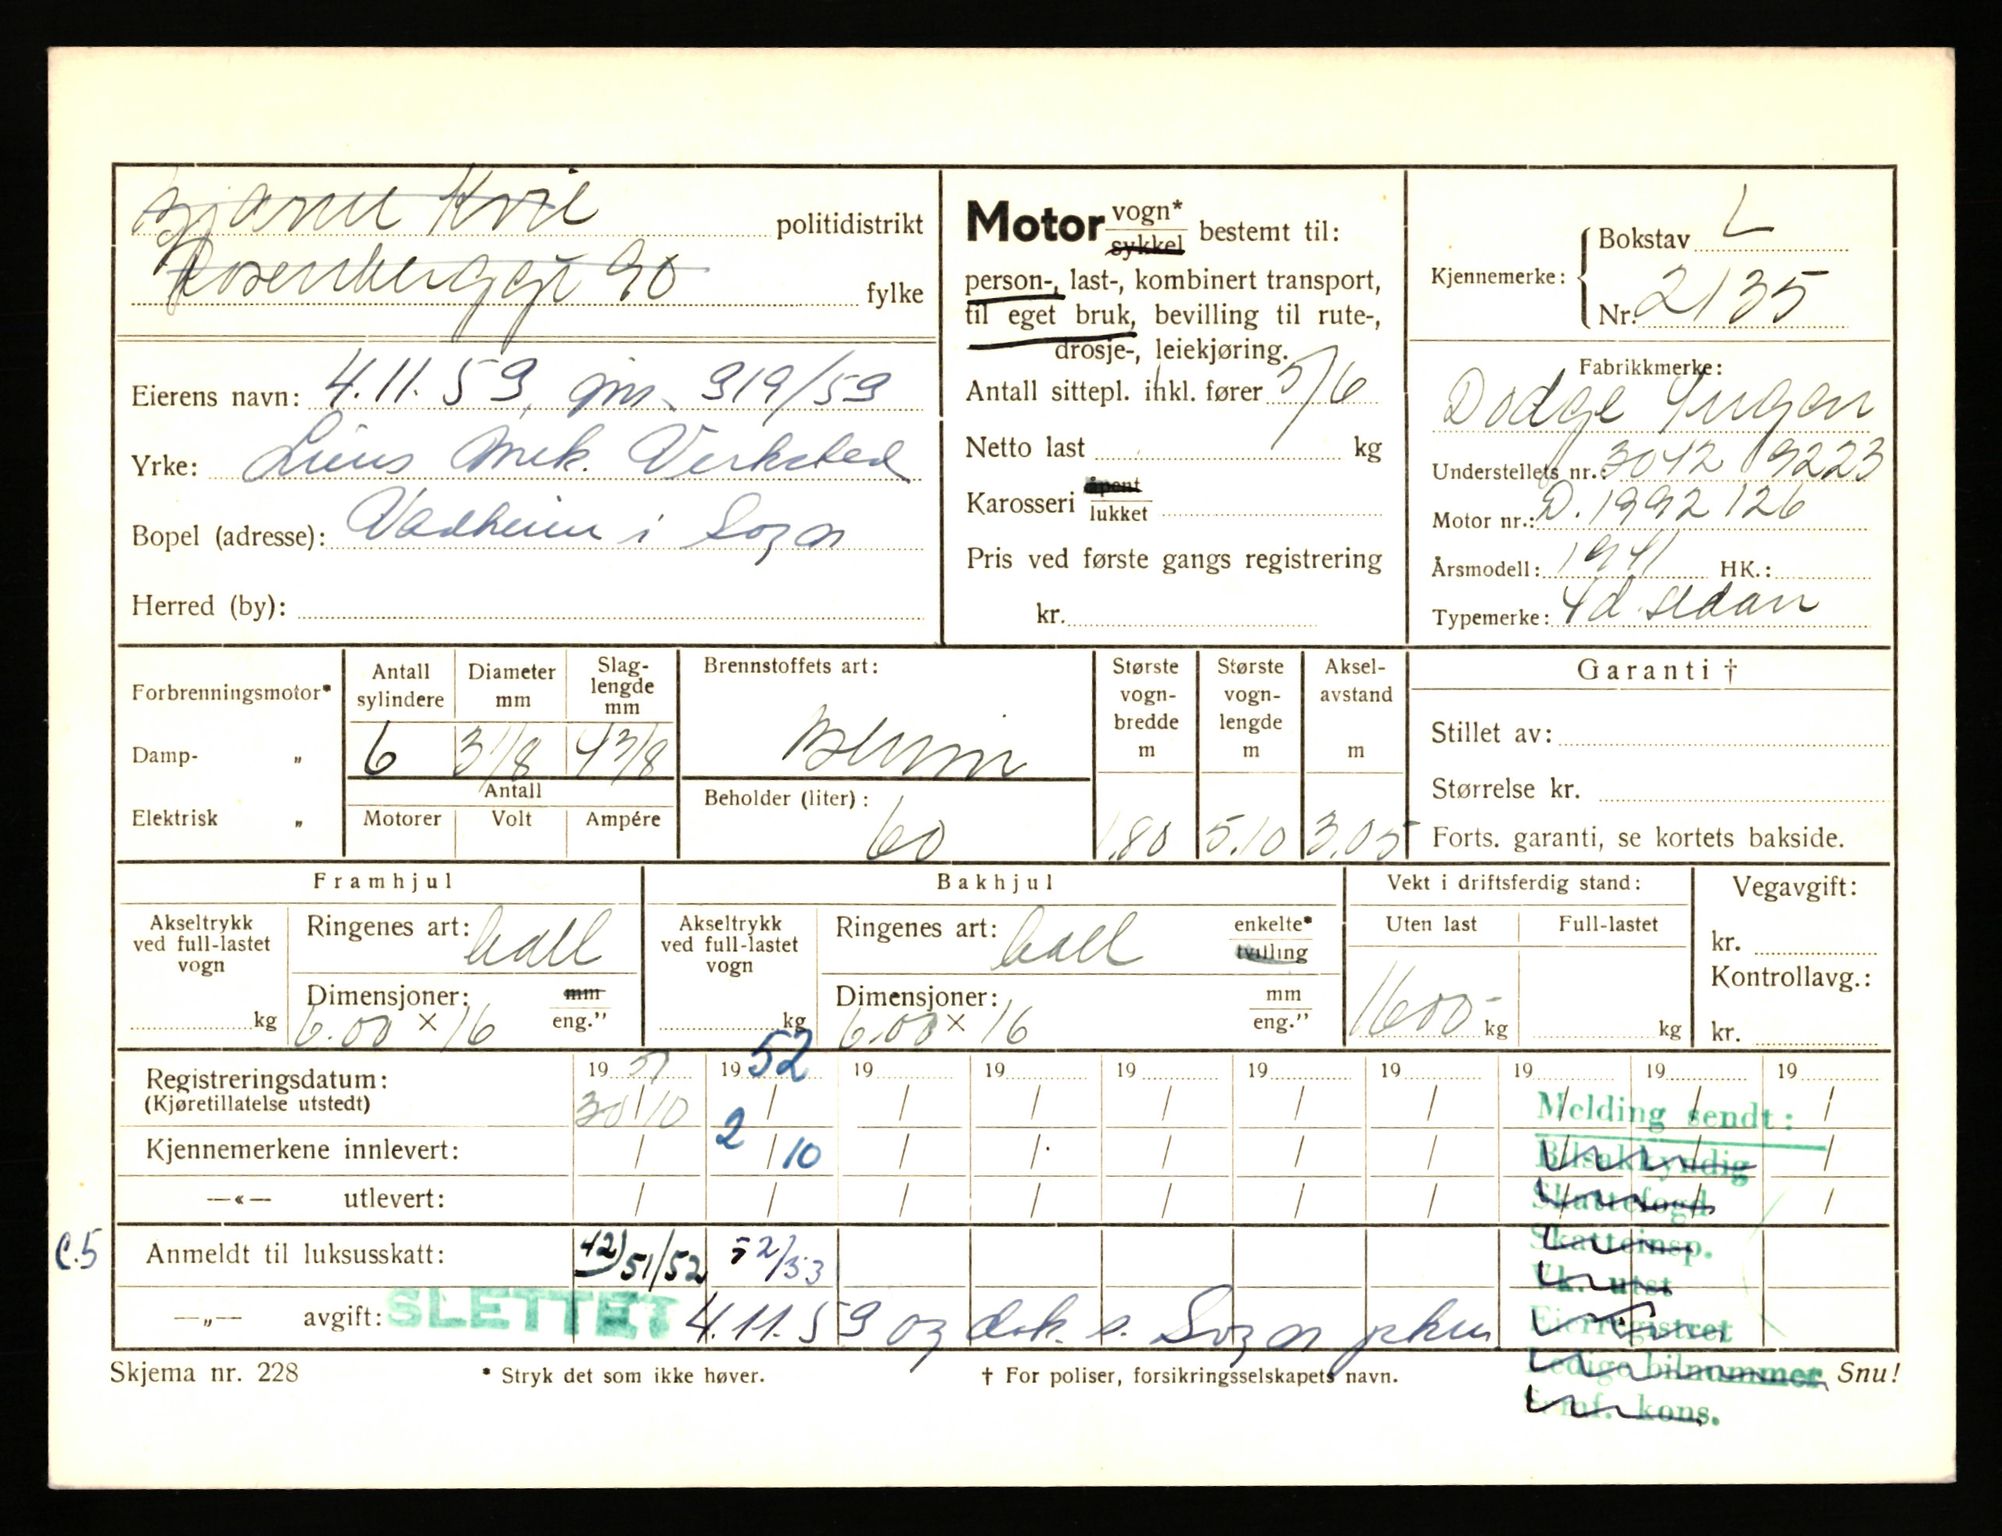 Bjarne Kvil politidistrikt
Rosenberggt 90 fylke
Eierens navn: 4.11.59, jnr. 919/59
Yrke: Liens Mek. Verksted
Bopel (adresse): Vadheim i Sogn
Herred (by):
Motor vogn* sykkel bestemt til:
person-, last-, kombinert transport,
til eget bruk, bevilling til rute-,
drosje-, leiekjøring.
Antall sittepl. inkl. fører 5/6
Netto last kg
Karosseri åpent lukket
Pris ved første gangs registrering
kr.
Kjennemerke: Bokstav L
Nr. 2135
Fabrikkmerke:
Dodge
Understellets nr.: 3042 9223
Motor nr.: D. 1992 126
Årsmodell: 1941 HK.:
Typemerke: 4d. sedan
Forbrenningsmotor*
Damp- „
Elektrisk „
Antall sylindere Diameter mm Slag-lengde mm
6 3 1/8 4 3/8
Antall
Motorer Volt Ampére
Brennstoffets art:
Bensin
Beholder (liter):
60
Største vogn-bredde m Største vogn-lengde m Aksel-avstand m
1.80 5.10 3.05
Garanti †
Stillet av:
Størrelse kr.
Forts. garanti, se kortets bakside.
Framhjul
Akseltrykk ved full-lastet vogn
kg
Ringenes art: ball
Dimensjoner: mm
6.00 × 16 eng."
Bakhjul
Akseltrykk ved full-lastet vogn
kg
Ringenes art: ball enkelte* tvilling
Dimensjoner: mm
6.00 × 16 eng."
Vekt i driftsferdig stand:
Uten last Full-lastet
1600- kg kg
Vegavgift:
kr.
Kontrollavg.:
kr.
Registreringsdatum: 19 51 19 52 19 19 19 19 19 19 19 19
(Kjøretillatelse utstedt) 30/10 / / / / / / / / /
Kjennemerkene innlevert: / 2/10 / / / / / / / /
—«— utlevert: / / / / / / / / / /
C.5 Anmeldt til luksusskatt: 42) 51/52 52/53
—„— avgift: SLETTET 4.11.59 og dok. s. Sogn pkm
Melding sendt:
Bilsakkyndig
Skattefogd
Skatteinsp.
Vk. utst
Eierregistret
Ledige bilnummer
kons.
Skjema nr. 228 * Stryk det som ikke høver. † For poliser, forsikringsselskapets navn. Snu!